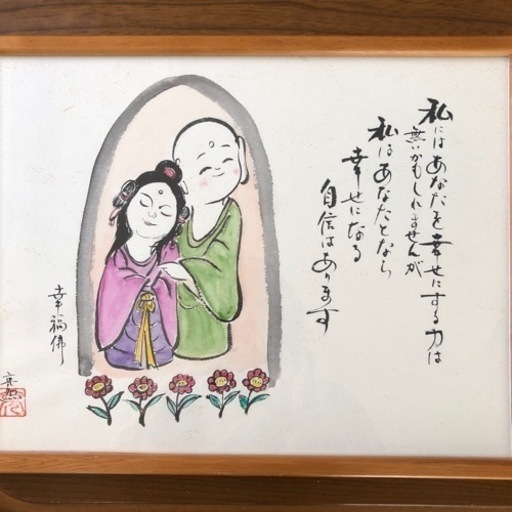 私にはあなたを幸せにする力は
無いかもしれませんが
私はあなたとなら
幸せになる
自信はあります
幸福佛